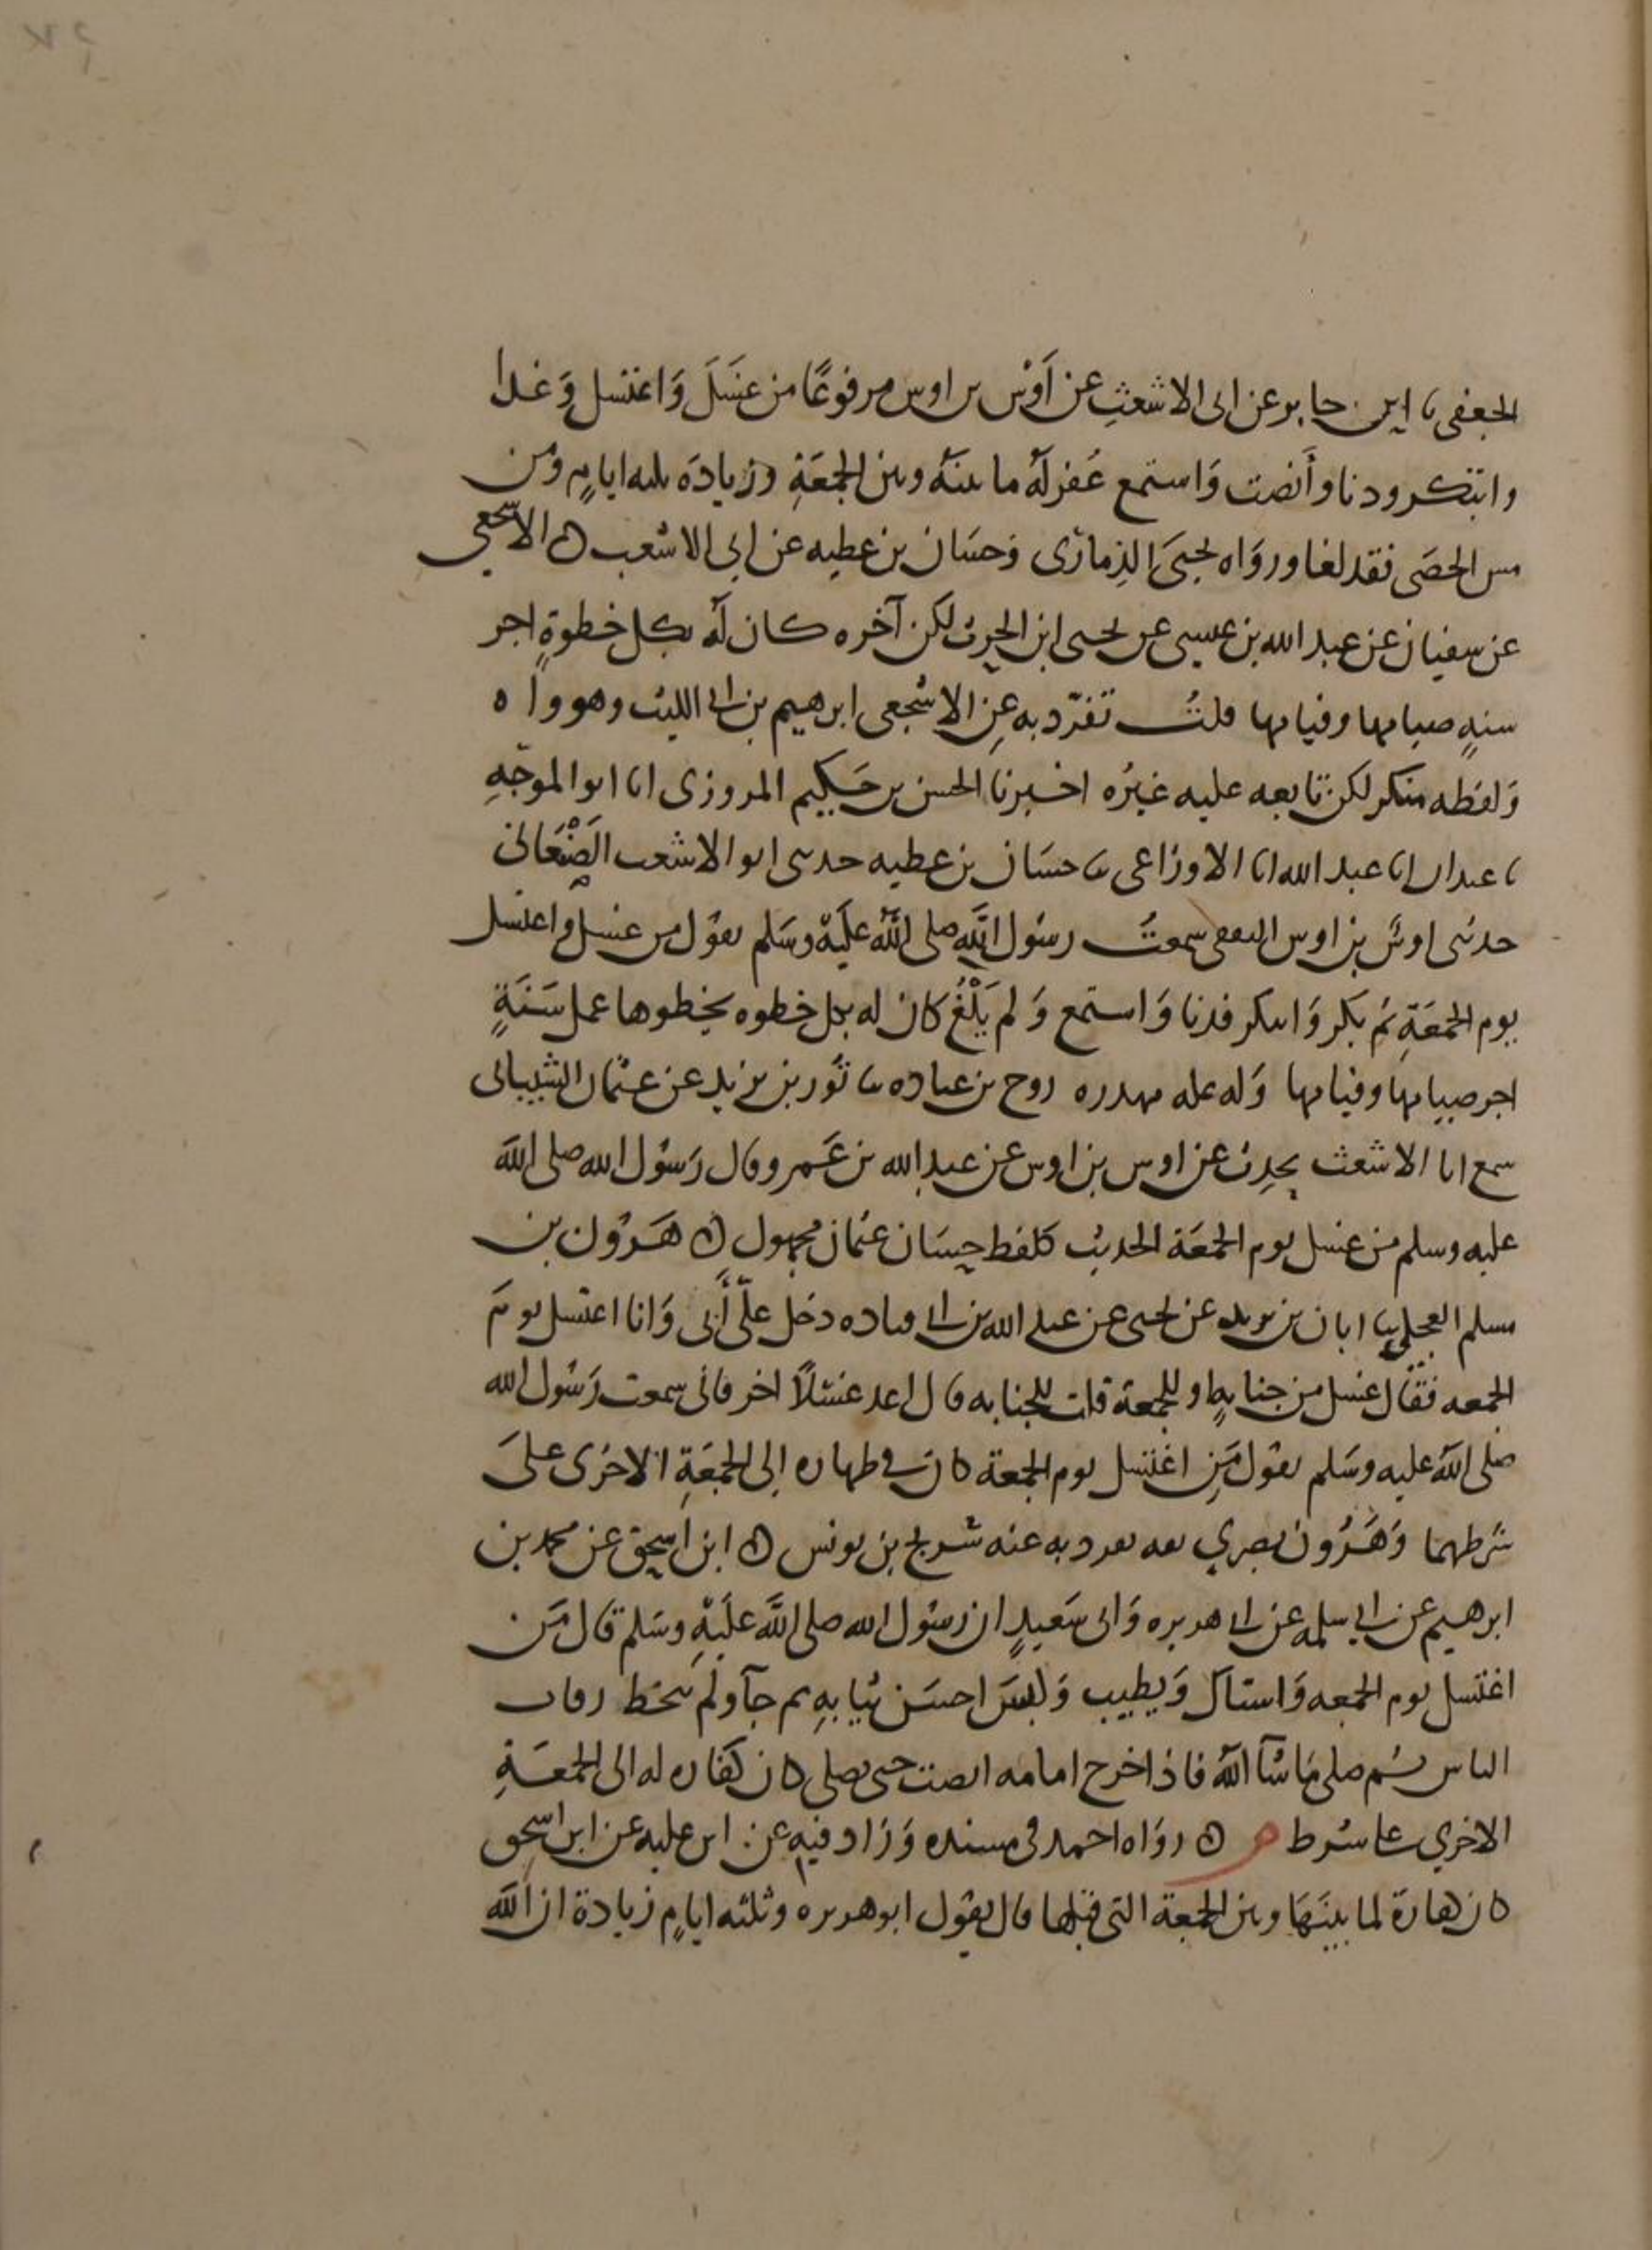 الجعفي ثنا ابن جابر عن ابى الاشعثِ عن اَوْس بن اوس مرفوعًا من غسَلَ وَاغتسل وَغدا
وابتكر ودنا وأَنصت وَاستمع غُفر لَهُ ما بينَهُ وبين الجمعَةِ وزيادَه ثلثه ايامٍ ومن
مس الحصَى فقد لغا ورواه يحيىَ الذِماري وَحسَان بن عطيه عن ابي الاشعث ۞ الاشجعي
عن سفيان عن عبد الله بن عيسى عن يحيى ابن الحرث لكن آخره كان لَهُ بكل خطوةٍ اجر
سنةٍ صيامها وقيامها قلتُ تفرّد به عِن الاشجعى ابرهيم بن ابي الليث وهو واه
وَلفظه منكر لكن تابعه عليه غيرُه اخبرنا الحسن بن حَكيم المروزى انا ابو الموجّهِ
ثنا عبدان انا عبد الله انا الاوزاعى ثنا حسَان بن عطيه حدثنى ابو الاشعث الصَنْعَانى
حدثنى اوسُ بن اوس الثقفى سمعتُ رسُول اللَّه صلى اللَّهُ علَيْه وسَلم يقوُل من غسل واغتسل
يوم الجمعَةِ ثم بَكر وَابتكر فدنا وَاستمع وَلم يَلْغُ كان له بكل خطوه يخطوها عمل سَنَةٍ
اجر صيامها وقيامها وَله عله مهدره روح بن عباده ثنا ثَور بن يزيد عن عثمان الشيبانى
سمع ابا الاشعث يحدِث عن اوس بن اوس عن عبد الله بن عَمرو قال رَسُول الله صلى اللَّه
عليه وسلم من غسل يوم الجمعَة الحديث كلفظ حسَان عثمان مجهول ۞ هَرُون بن
مسلم العجلي ثنا ابان بن يزيد عن يحيى عن عبد الله بن ابى قتاده دخل علَّى أَبى وَانا اغتسل يومَ
الجمعه فقال غسل من جنابهٍ او للجمعة قلت للجنابه قال اعد غسْلاً اخر فانى سمعت رَسُول الله
صَلى اللَّه عليه وسَلم يقول مَنِ اغتسل يوم الجمعة كان في طهاره إلى الجمعَةِ الاخرى على
شرطهما وَهَرُون بصري ثقه تفرد به عنه شريح بن يونس ۞ ابن اسحق عن محمد بن
ابرهيم عن ابي سلمه عن ابى هريره وَابى سَعيدٍ ان رسُول الله صلى اللَّه علَيْهِ وسَلم قال مَن
اغتسل يوم الجمعه وَاستاك وَتطيب وَلبسَ احسَن ثيابهِ ثم جآ ولَم يتخط رقاب
الناس ثم صلى مَا شآ اللَّهُ فاذا خرج امامه انصت حتى يصلى كان كفاره له الى الجمعَةِ
الاخري على شرط م ۞ رواه احمد فى مسنده وَزاد فيه عن ابن عليه عن ابن اسحق
كان هارة لما بينَهَا وبين الجمعة التى قبلها قال يقول ابو هريره وثلثه ايامٍ زيادة ان اللَّه